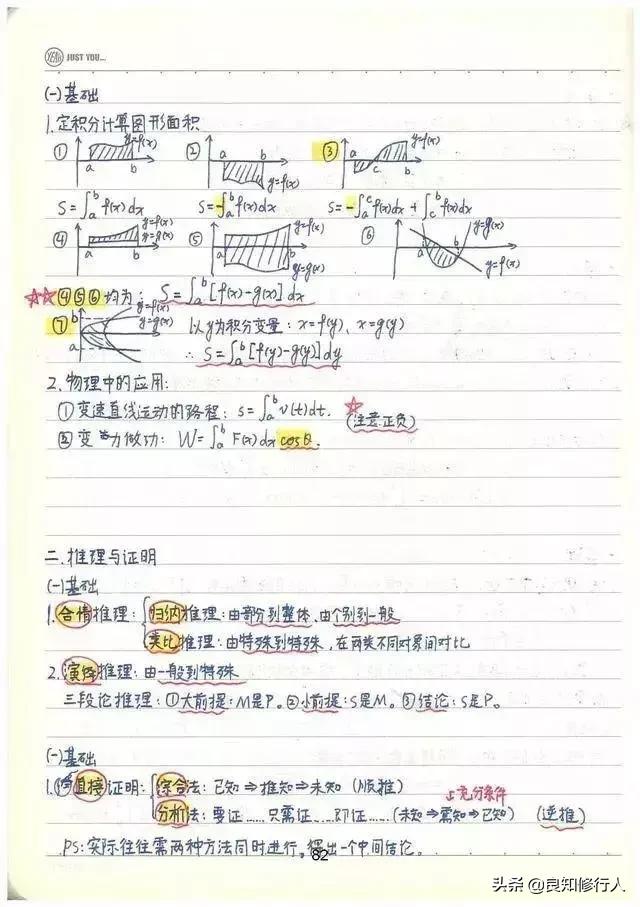 YEAH JUST YOU...
(一)基础
1.定积分计算图形面积
① a b y=f(x)
② a b y=f(x)
③ a c b y=f(x)
S=∫ₐᵇ f(x)dx
S=-∫ₐᵇ f(x)dx
S=-∫ₐᶜ f(x)dx + ∫꜀ᵇ f(x)dx
④ a b y=f(x) y=g(x)
⑤ a b y=f(x) y=g(x)
⑥ a b y=g(x) y=f(x)
☆☆④⑤⑥均为: S=∫ₐᵇ [f(x)-g(x)]dx
⑦ b a y=f(x) y=g(x)
以y为积分变量: x=f(y)、x=g(y)
∴ S=∫ₐᵇ [f(y)-g(y)]dy
2.物理中的应用:
①变速直线运动的路程: s=∫ₐᵇ v(t)dt. ☆(注意正负)
②变力做功: W=∫ₐᵇ F(x)dx cosθ.
二.推理与证明
(一)基础
1.合情推理:{归纳推理:由部分到整体、由个别到一般
类比推理:由特殊到特殊,在两类不同对象间对比
2.演绎推理:由一般到特殊
三段论推理:①大前提:M是P。②小前提:S是M。③结论:S是P。
(一)基础
1.直接证明:{综合法:已知⇒推知⇒未知(顺推)
充分条件
分析法:要证……只需证……即证……(未知⇒需知⇒已知) (逆推)
PS:实际往往需两种方法同时进行。得出一个中间结论。
82
头条 @良知修行人